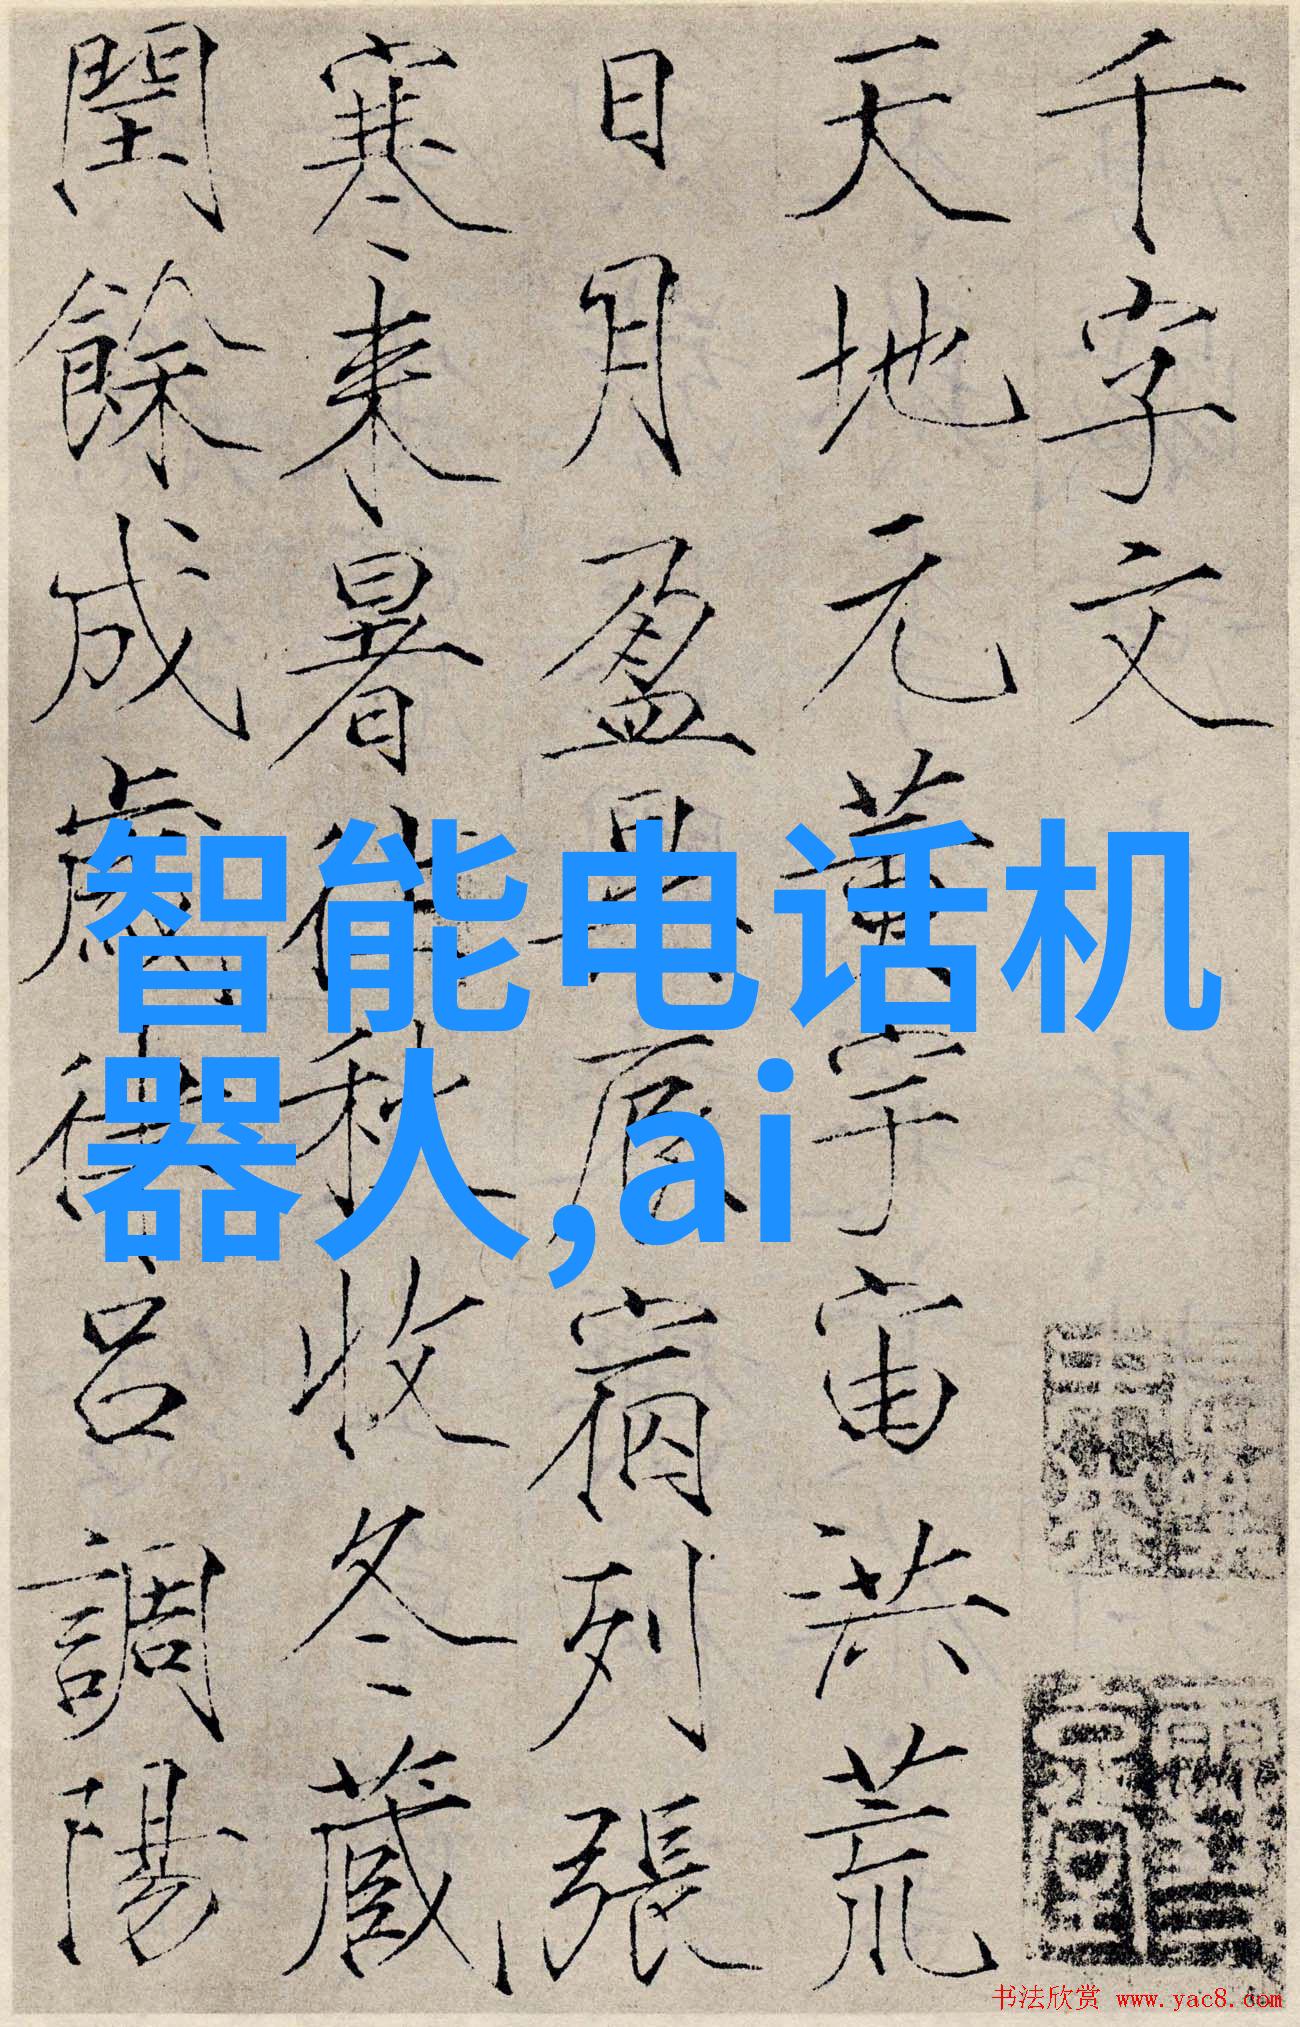 千字文
天地元黄宇宙洪荒
日月盈昃辰宿列張
寒来暑往秋收冬蔵
閏餘成歲律吕調陽
智能电话机
器人,ai
书法欣赏 www.yac8.com